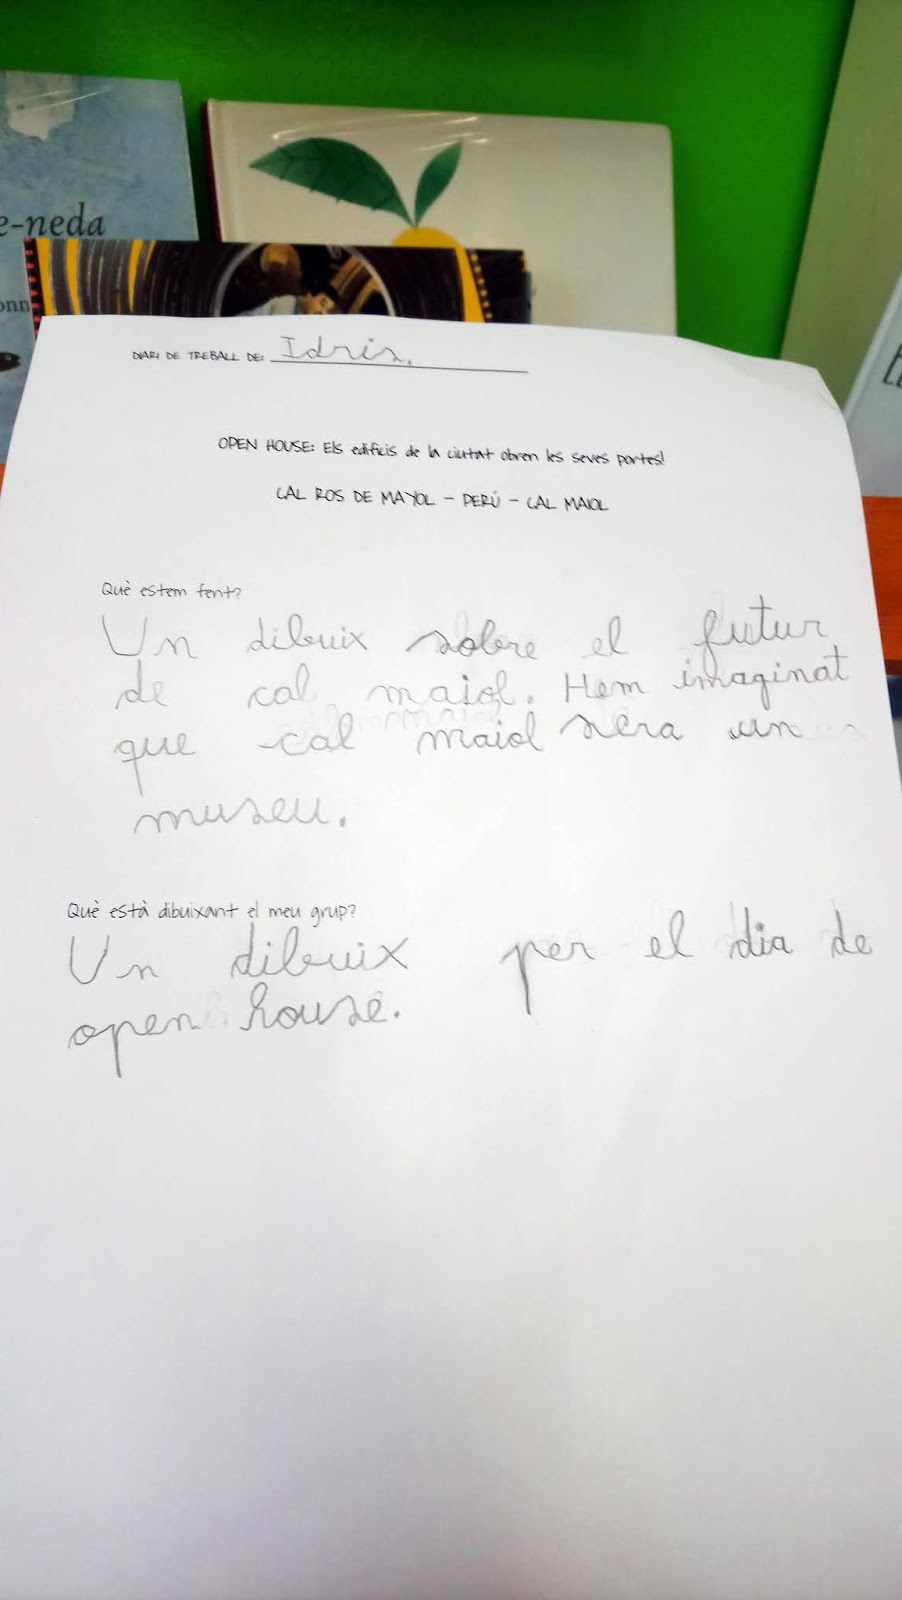 e-neda
onn
DIARI DE TREBALL DE: Idris.
OPEN HOUSE: Els edificis de la ciutat obren les seves portes!
CAL ROS DE MAYOL - PERÚ - CAL MAIOL
Què estem fent?
Un dibuix sobre el futur
de cal maiol. Hem imaginat
que cal maiol sera un
museu.
Què està dibuixant el meu grup?
Un dibuix per el dia de
open house.